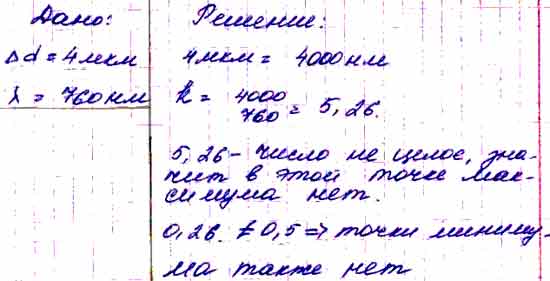 Дано: Решение:
Δd = 4 мкм 4 мкм = 4000 нм
λ = 760 нм k = 4000/760 = 5,26.
5,26 - число не целое, зна-
чит в этой точке мак-
симума нет.
0,26 ≠ 0,5 => точки миниму-
ма также нет